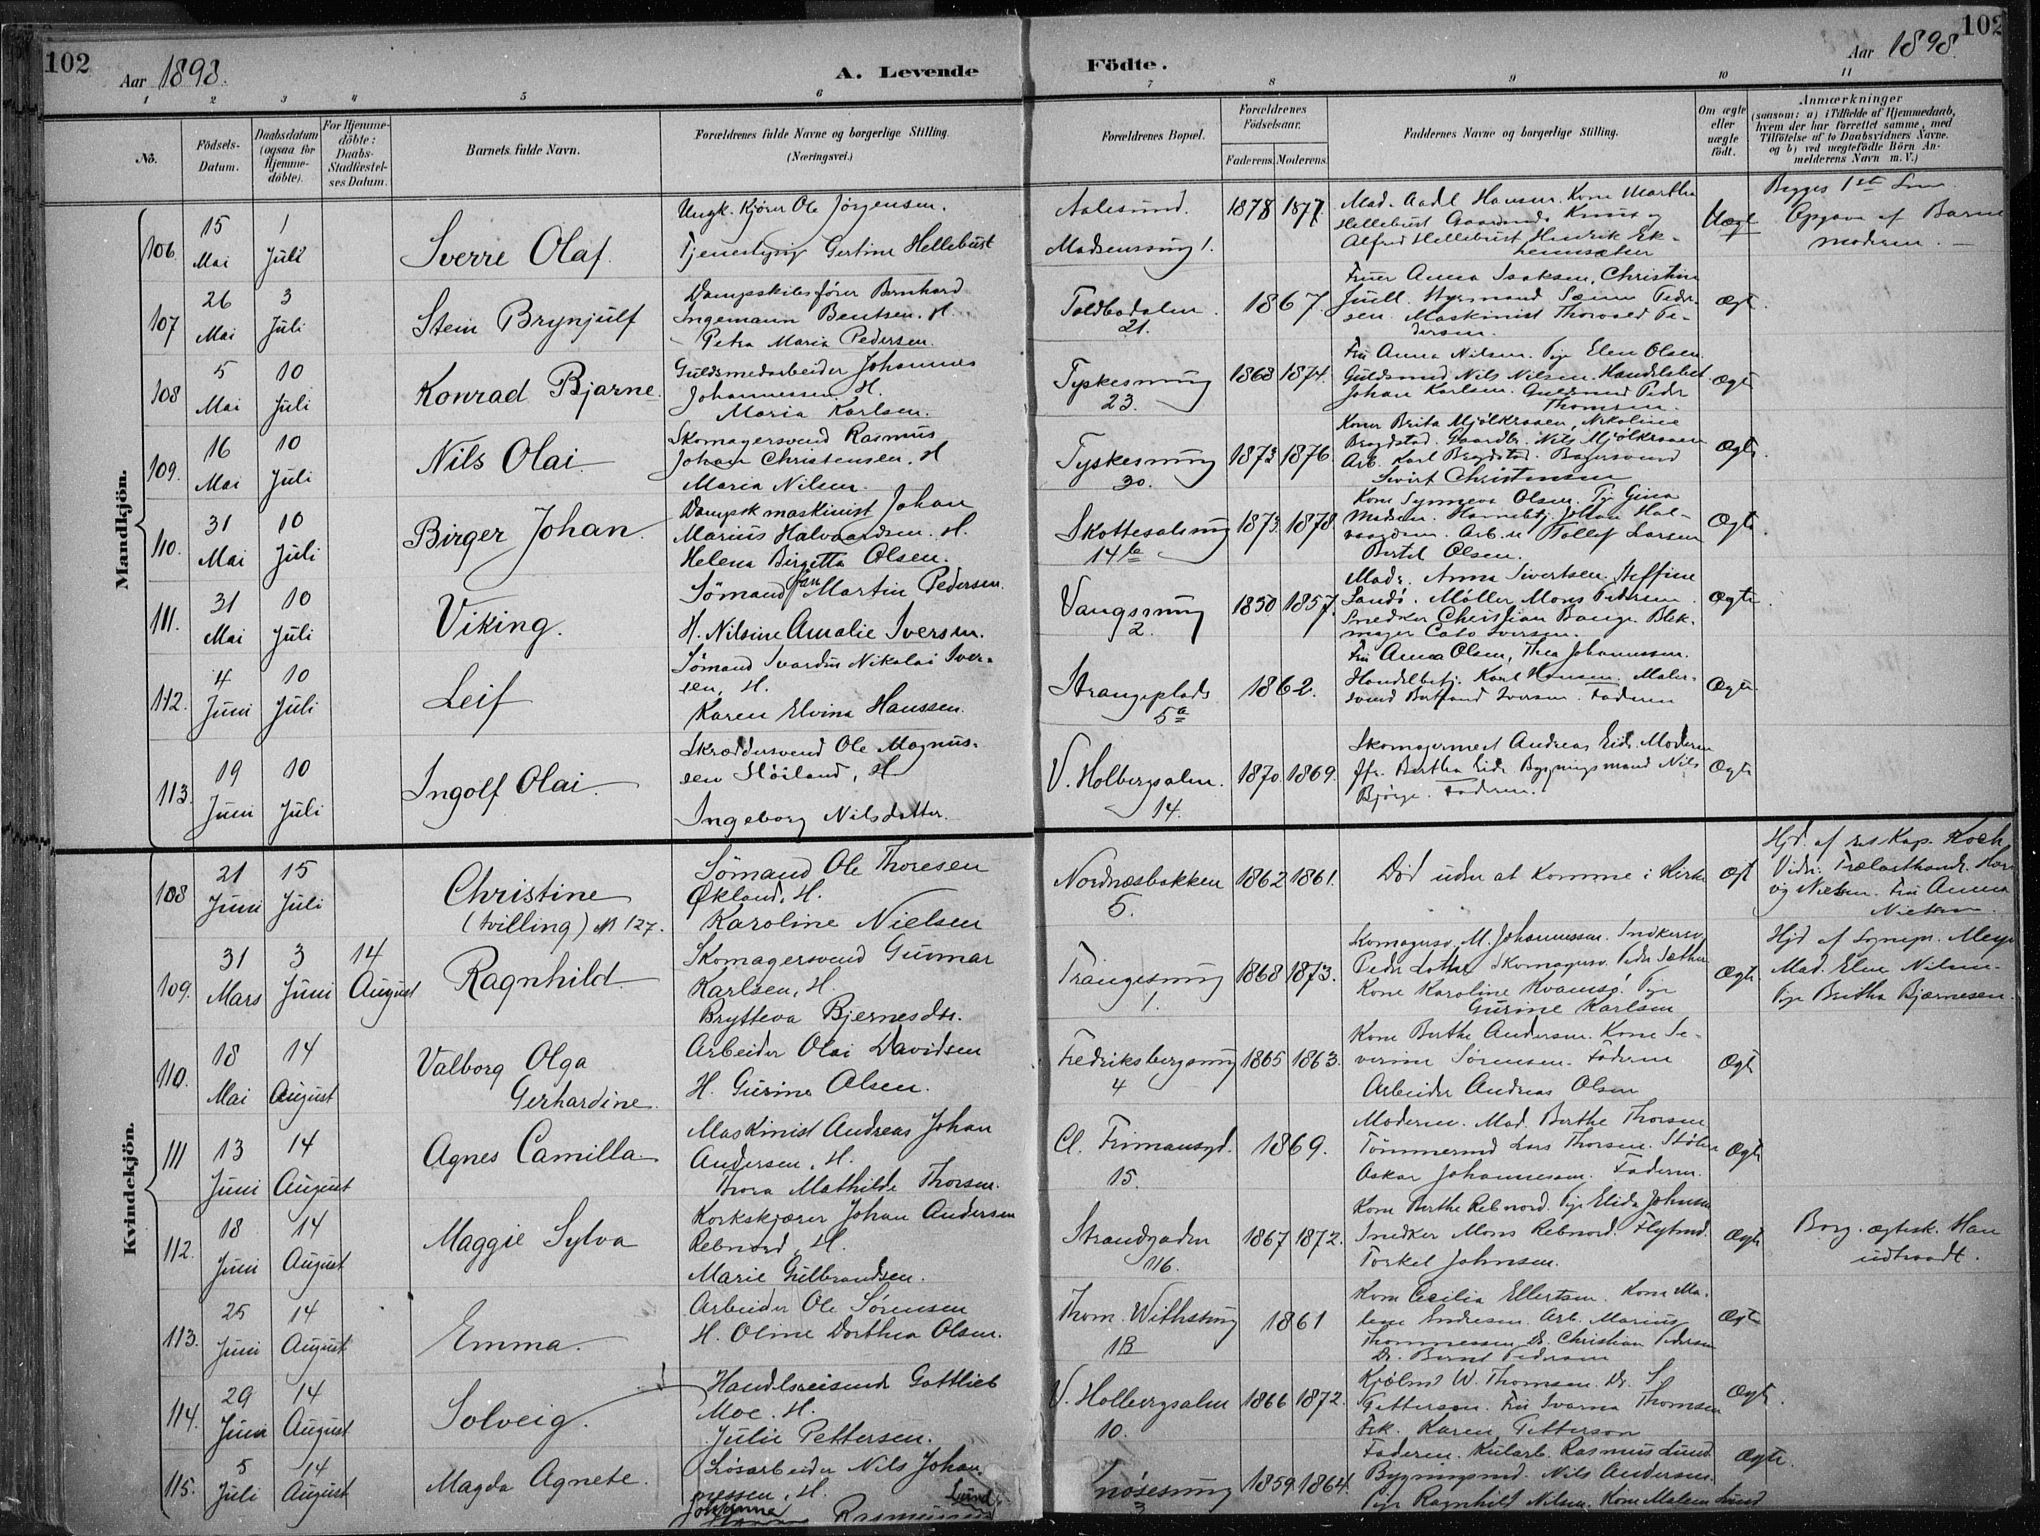 102
Aar 1898.
A. Levende
Födte.
Aar 1898.
102
1 2 3 4 5 6 7 8 9 10 11
No.
Födsels-Datum.
Daabsdatum (ogsaa for Hjemme-döbte).
For Hjemme-döbte: Daabs-Stadfæstel-ses Datum.
Barnets fulde Navn.
Forældrenes fulde Navne og borgerlige Stilling.
(Næringsvei.)
Forældrenes Bopæl.
Forældrenes Födselsaar.
Faderens. Moderens.
Faddernes Navne og borgerlige Stilling.
Om ægte eller uægte födt.
Anmærkninger
(saasom: a) i Tilfælde af Hjemmedaab, hvem der har forrettet samme, med Tilföielse af to Daabsvidners Navne. og b) ved uægtefödte Börn An-melderens Navn m. V.)
Mandkjön.
106.
15 Mai
1 Juli
Sverre Olaf.
Ungk. Kjører Ole Jørgensen.
Tjenestepig Gertine Hellebust
Aalesund.
Madsenssmug 1.
1878 1877
Mad. Aadl Hansen. Kone Martha
Hellebust Gaardmd. Knut og
Alfred Hellebust, Henrik Ek-
Uægt
Begges 1ste
Opgave af Barne
moderen.
107
26 Mai
3 Juli
Stein Brynjulf
Dampskibsfører Bernhard
Ingemann Bentsen. H.
Petra Maria Pedersen.
Toldbodalm.
21.
1867.
Fruer Anna Isaksen, Christine
Juell. Styrmand
Maskinist Thorvald Pe-
dersen.
Ægt
108
5 Mai
10 Juli
Konrad Bjarne.
Guldsmedarbeider Johannes
Johannessen. H.
Maria Karlsen.
Tyskesmug
23.
1868 1874.
Fru Anna Nilsen. Pige Elen Olsen.
Guldsmed Nils Nilsen. Handelsbet
Johan Karlsen. Guldsmed Peder
Thomsen.
Ægt
109.
16 Mai
10 Juli
Nils Olai
Skomagersvend Rasmus
Johan Christensen. H
Maria Nilsen.
Tyskesmug
30.
1873 1876.
Koner Brita Mjölkraaen, Nikoline
Brogdstad. Gaardbr. Nils Mjölkraaen
Arb. Karl Brogdstad. Bagersvend
Sivert Christensen
Ægte.
110.
31 Mai
10 Juli
Birger Johan.
Dampsk maskinist Johan
Marius Halvaardsen. H.
Helena Birgitta Olsen.
Skottesalmug
14 b
1873. 1878
Kone Synneva Olsen. Pige Gina
Madsen. Johan Hal-
vaardsen. Arb. Tollef Larsen
Bertel Olsen.
Ægte.
111.
31 Mai
10 Juli
Viking.
Sømand Jan Martin Pedersen.
H. Nilsine Amalie Iversen.
Vangssmug
2.
1850 1857.
Mads. Anna Sivertsen. Steffine
Sandö. Møller Mons Pedersen.
Snedker Christian Bange. Blik-
mager Cato Iversen.
Ægte.
112.
4 Juni
10 Juli
Leif
Sømand Ivardus Nikolai Iver-
sen, H.
Karen Elvina Hanssen.
Strangeplads
5 a
1862.
Fru Anna Olsen, Thea Johannessen.
Handelbetj. Karl Hansen. Maler-
svend Bertrand Iversen. Faderen
Ægte.
113.
19 Juni
10 Juli
Ingolf Olai.
Skræddersvend Ole Magnus-
sen Höiland, H.
Ingeborg Nilsdatter.
V. Holbergsalm.
14.
1870. 1869.
Skomagermest Andreas Eide. Moderen
Jfr. Bertha Eide Bygningsmand Nils
Bjørge. Faderen.
Ægte
Kvindekjön.
108
21 Juni
15 Juli
Christine
(tvilling) N 127.
Sömand Ole Thoresen
Økland, H.
Karoline Nielsen
Nordnæsbakken
5.
1862 1861.
Död uden at komme i Kirke
Ægt
Hjd. af res Kap. Koch
Vidn. Trælasthandl.
og Nielsen. Fru Anna
Nielsen.
109.
31 Mars
3 Juni
14 August
Ragnhild
Skomagersvend Gunnar
Karlsen, H.
Brytteva Bjernesdtr.
Trangesmug
1.
1868 1873.
Skomagersv. M. Johannessen. Snedkersv.
Peder Lothe Skomagersv. Peder Sæther
Kone Karoline Kvamsö. Pige
Gurine Karlsen
Ægte
Hjd af Sognepr. Meyer
Mad. Elen Nilsen.
Pige Britha Bjærnesen.
110.
18 Mai
14 August
Valborg Olga
Gerhardine.
Arbeider Olai Davidsen
H. Gurine Olsen.
Fredriksbergsmug
4
1865 1863.
Kone Berthe Andersen. Kone Se-
verine Sörensen. Faderen
Arbeider Andreas Olsen
Ægte
111
13 Juni
14 August
Agnes Camilla
Maskinist Andreas Johan
Andersen, H.
Thora Mathilde Thorsen.
Cl. Frimansgd.
15.
1869.
Moderen. Mad. Berthe Thorsen
Tömmermd Lars Thorsen.
Oskar Johannessen. Faderen.
Ægte
112.
18 Juni
14 August
Maggie Sylva
Korkskjærer Johan Andersen
Rebnord, H.
Marie Gulbrandsen.
Strandgaden
116.
1867 1872.
Kone Berthe Rebnord. Pige Elida Johnsen
Snedker Mons Rebnord. Flytmd.
Torkel Johnsen.
Ægte
Borg. ægtesk. Han
udtraadt.
113.
25 Juni
14 August
Emma.
Arbeider Ole Sørensen
H. Oline Dorthea Olsen.
Thom. Withsmug
1B
1861
Kone Cecilia Ellertsen. Kone Ma-
lene Andresen. Arb. Marius
Thommessen Do. Christian Pedersen
Do. Bernt Pedersen
Ægte
114.
29 Juni
14 August
Solveig.
Handlsreisende Gottlieb
Moe. H.
Julie Pettersen.
V. Holbergsalm
10.
1866 1872.
Kjölmd W. Thomsen. Do. S.
Pettersen. Fru Ivarna Thomsen
Frk. Karen Petterson
Ægte.
115.
5 Juli
14 August
Magda Agnete.
Løsarbeider Nils Johan
nessen, H. Lund.
Johanna Rasmussen
smug
3
1859 1864.
Faderen. Kularb. Rasmus Lund
Bygningsmd. Nils Andersen.
Pige Ragnhild Nilsen. Kone Malene Lund
Ægte.